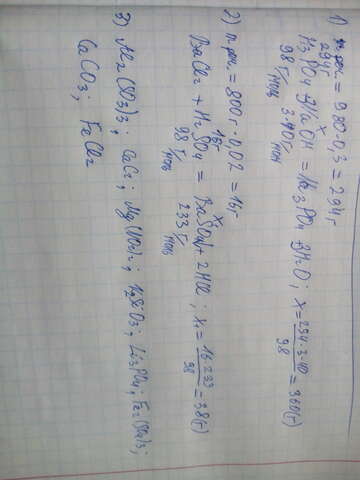 1) m рас. = 980·0,3 = 294г
294г x
H3PO4 + 3NaOH = Na3PO4 + 3H2O; x = 294·3·40 / 98 = 360(г)
98 г/моль 3·40 г/моль
2) m рас. = 800г·0,02 = 16г
16г x1
BaCl2 + H2SO4 = BaSO4↓ + 2HCl; x1 = 16·233 / 98 = 38(г)
98 г/моль 233 г/моль
3) Al2(SO3)3; CaC2; Mg(NO2)2; K2SiO3; Li3PO4; Fe2(SO4)3;
CaCO3; FeCl2